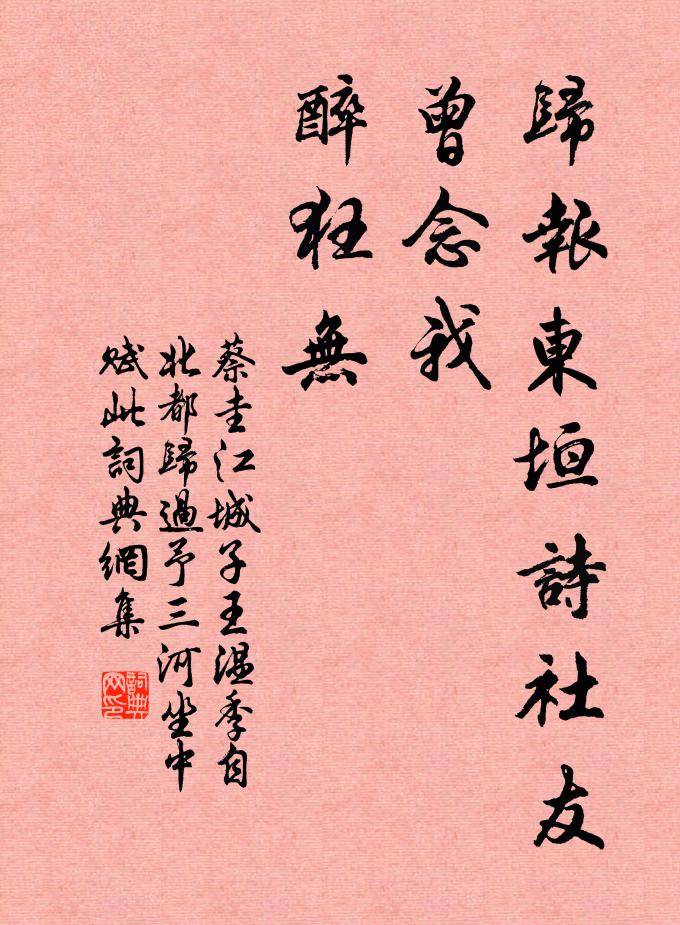 歸報東垣詩社友
曾念我
醉狂無
蔡圭江城子王溫季自
北都歸過予三河坐中
賦此詞典網集
詞典网印